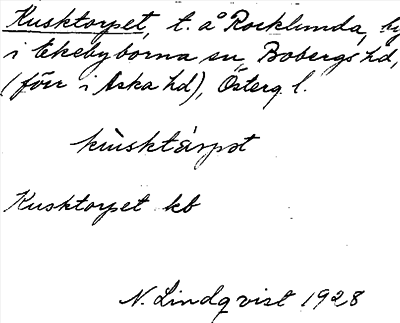 Kusktorpet, t. å Rocklunda, by
i Ekebyborna sn, Bobergs hd,
(förr i Aska hd), Österg l.
kùsktárpət
Kusktorpet kb
N. Lindqvist 1928